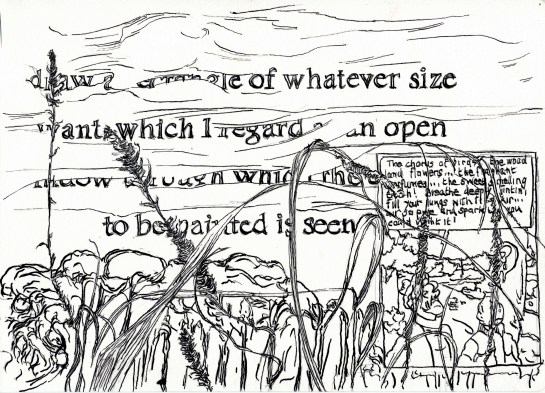 draw a rectangle of whatever size
want, which I regard as an open
window through which the
to be painted is seen
The chorus of birds, the wood
and flowers... the fragrant
perfumes... the sweet smelling
Breathe deep
Fill your lungs with it
so pure and sparkling you
could paint it!